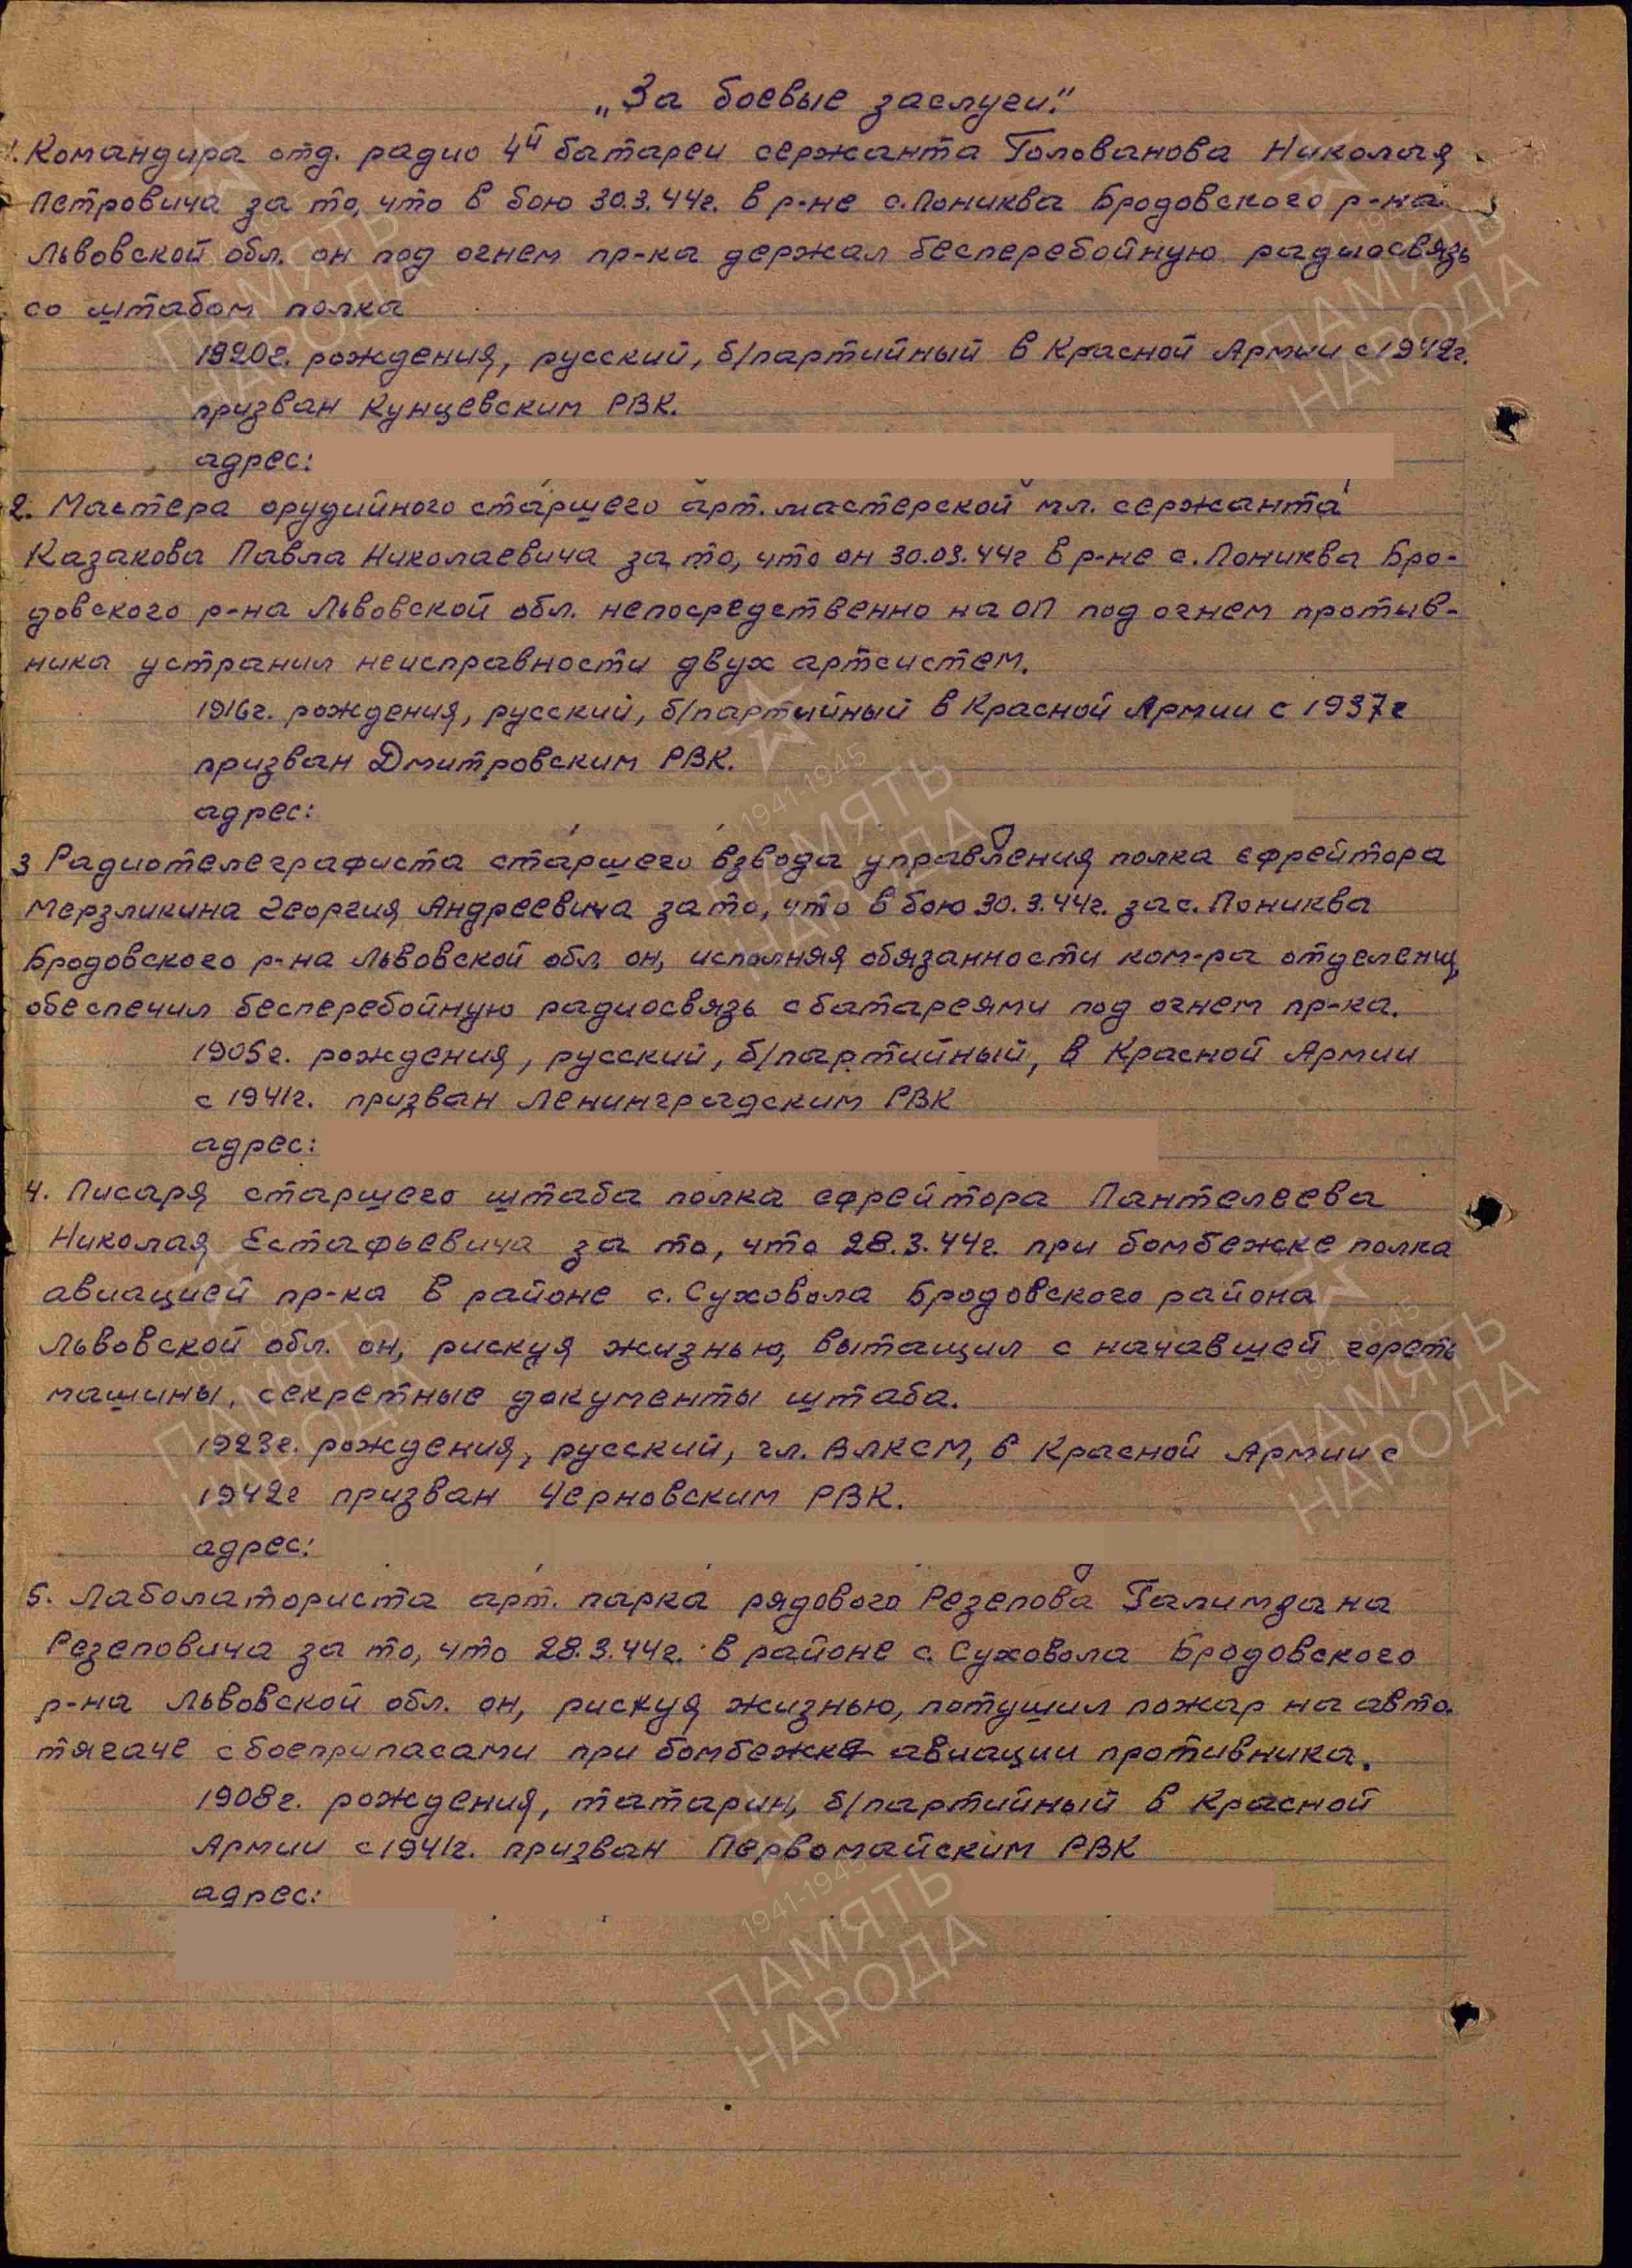 „За боевые заслуги."
1. Командира отд. радио 4й батареи сержанта Голованова Николая
Петровича за то, что в бою 30.3.44г. в р-не с. Пониква Бродовского р-на
Львовской обл. он под огнем пр-ка держал бесперебойную радиосвязь
со штабом полка
1920г. рождения, русский, б/партийный в Красной Армии с 1942г.
призван Кунцевским РВК.
адрес:
2. Мастера орудийного старшего арт. мастерской мл. сержанта
Казакова Павла Николаевича за то, что он 30.03.44г в р-не с. Пониква Бро-
довского р-на Львовской обл. непосредственно на ОП под огнем против-
ника устранил неисправности двух артсистем.
1916г. рождения, русский, б/партийный в Красной Армии с 1937г
призван Дмитровским РВК.
адрес:
3 Радиотелеграфиста старшего взвода управления полка ефрейтора
Мерзликина Георгия Андреевича за то, что в бою 30.3.44г. за с. Пониква
Бродовского р-на Львовской обл. он, исполняя обязанности ком-ра отделени,
обеспечил бесперебойную радиосвязь с батареями под огнем пр-ка.
1905г. рождения, русский, б/партийный, в Красной Армии
с 1941г. призван Ленинградским РВК
адрес:
4. Писаря старшего штаба полка ефрейтора Пантелеева
Николая Естафьевича за то, что 28.3.44г. при бомбежске полка
авиацией пр-ка в районе с. Суховола Бродовского района
Львовской обл. он, рискуя жизнью, вытащил с начавшей гореть
машины, секретные документы штаба.
1923г. рождения, русский, чл. ВЛКСМ, в Красной Армии с
1942г призван Черновским РВК.
адрес:
5. Лаболаториста арт. парка рядового Резепова Галимдана
Резеповича за то, что 28.3.44г. в районе с. Суховола Бродовского
р-на Львовской обл. он, рискуя жизнью, потушил пожар на авто.
тягаче с боеприпасами при бомбежке авиации противника.
1908г. рождения, татарин, б/партийный в Красной
Армии с 1941г. призван Первомайским РВК
адрес:
1941-1945
ПАМЯТЬ
НАРОДА